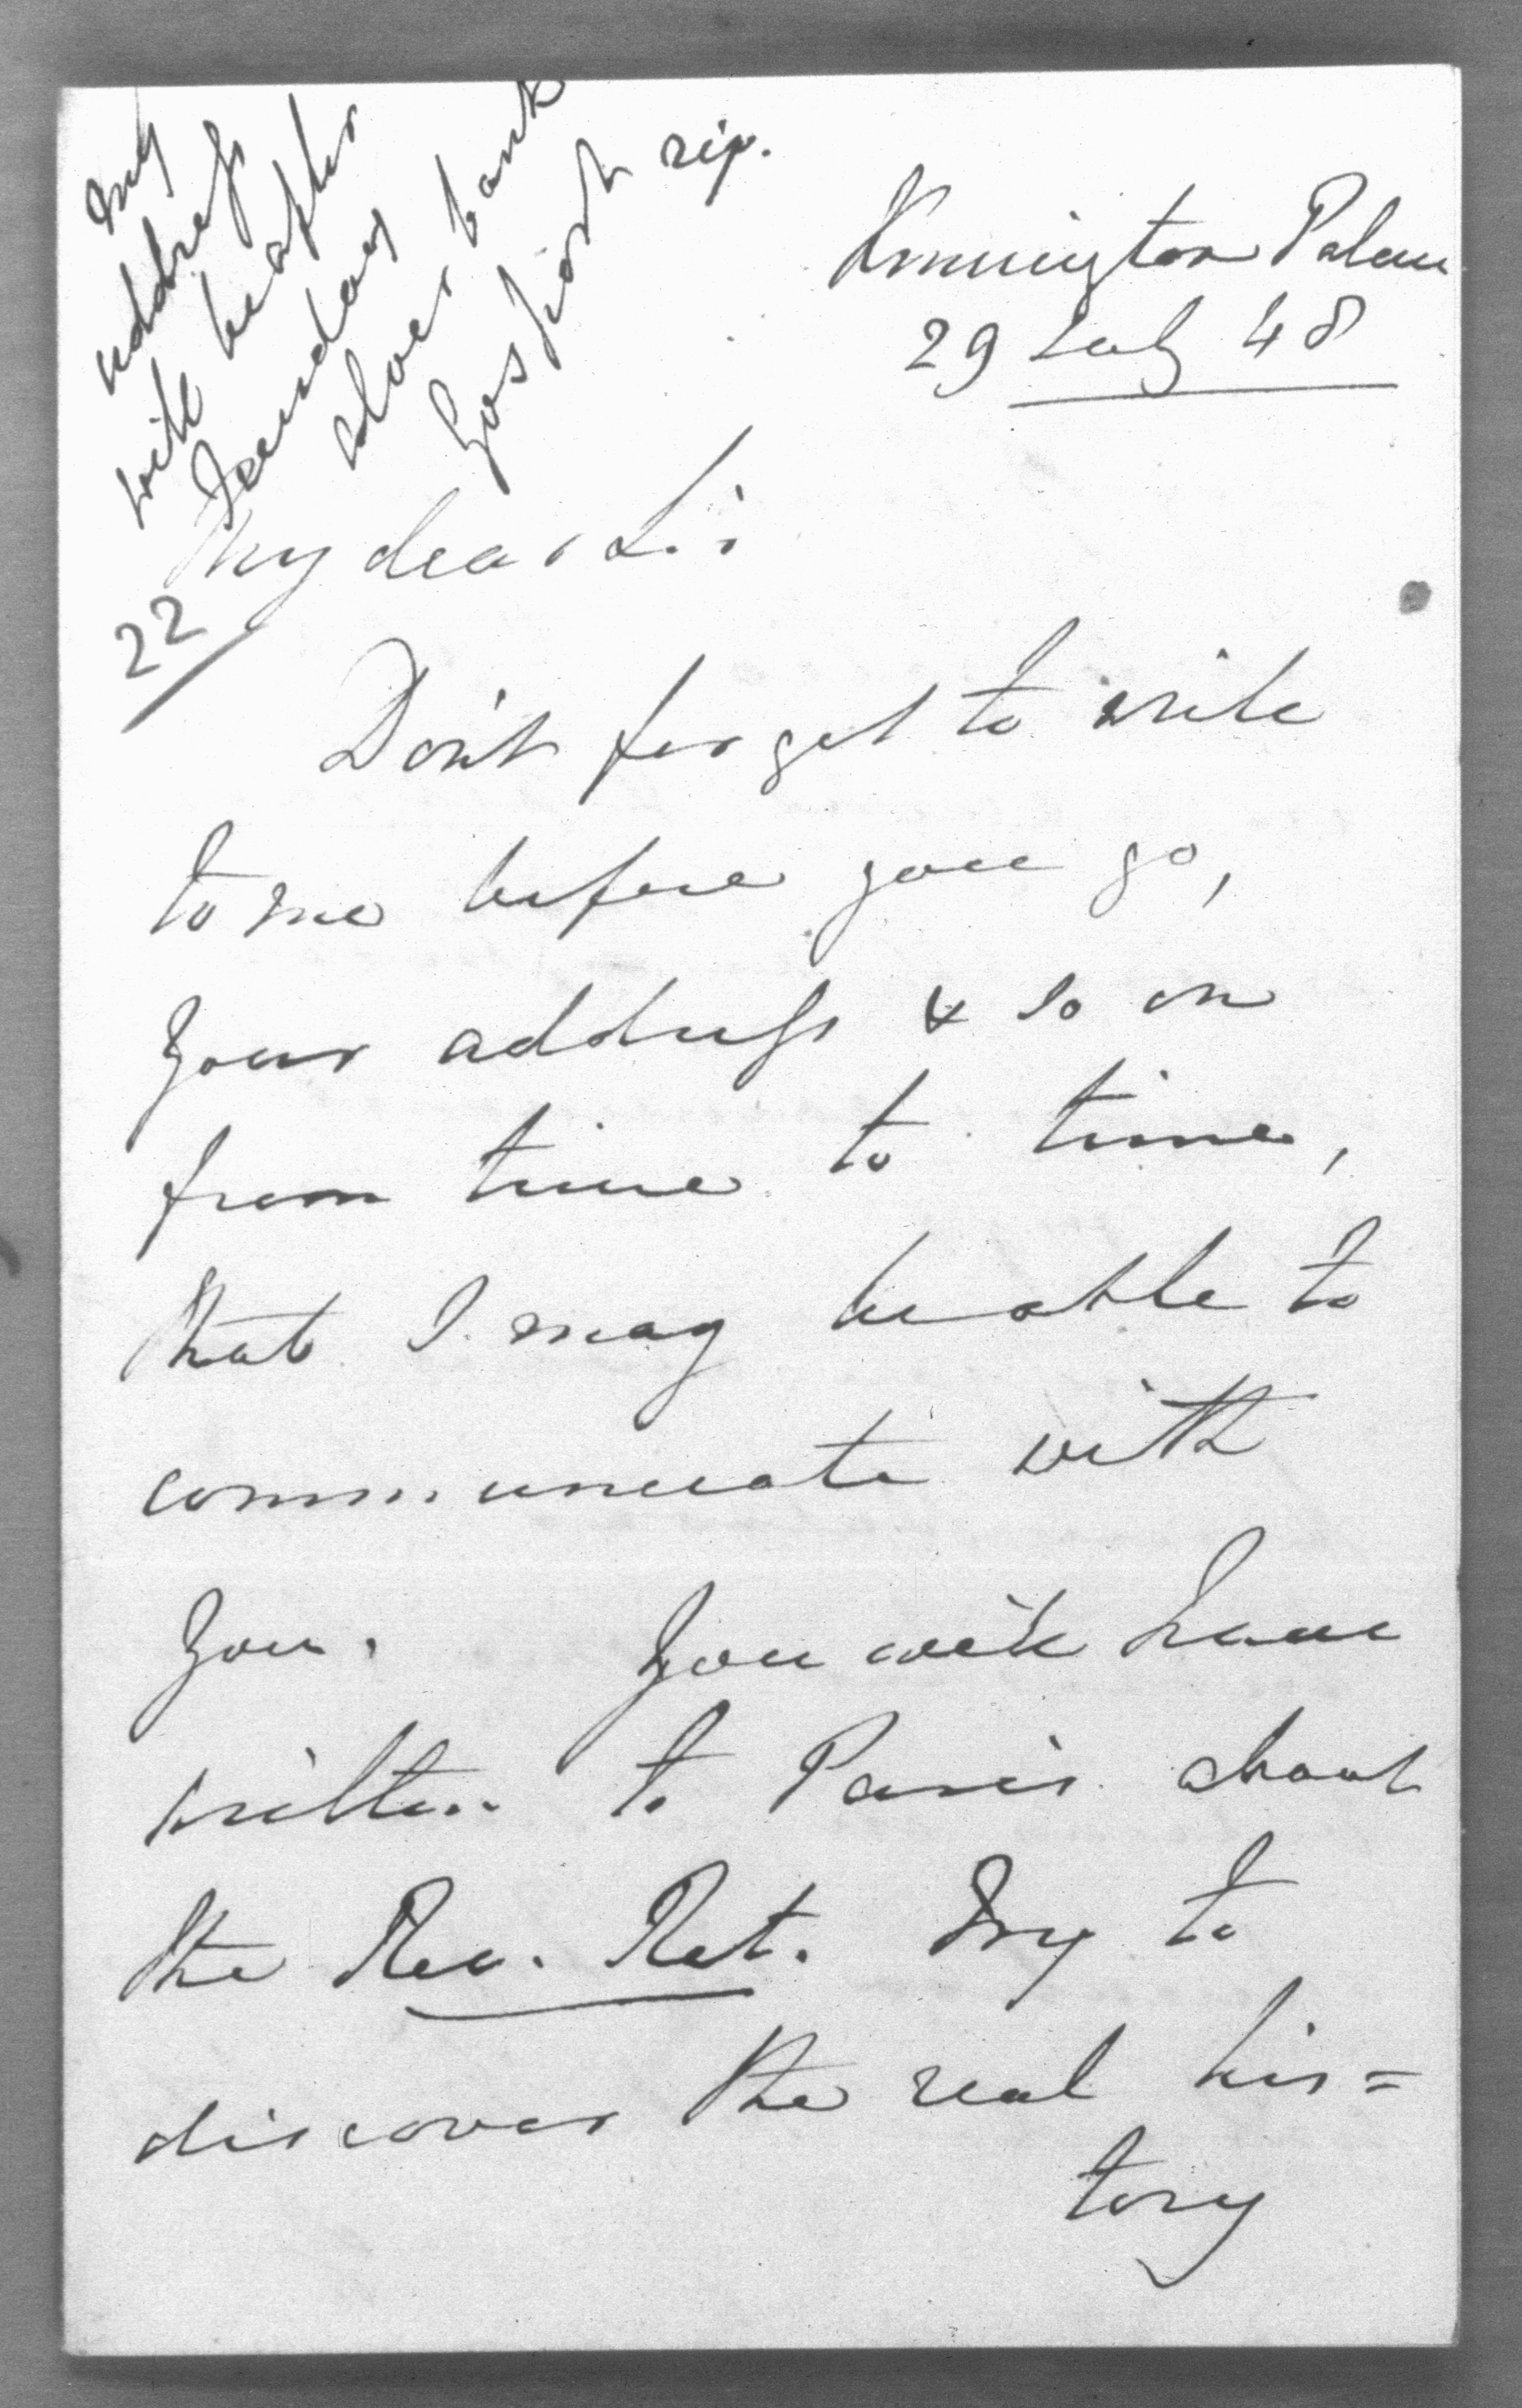 My
address
will be after
Tuesday
Alver bank
Gosport
Kennington Palace
29 July 48
My dear L.:
22
Don't forget to write
to me before you go,
Your address & so on
from time to time,
that I may be able to
communicate with
You. You will have
written to Paris about
the Rev. Ret. Try to
discover the real his=
tory